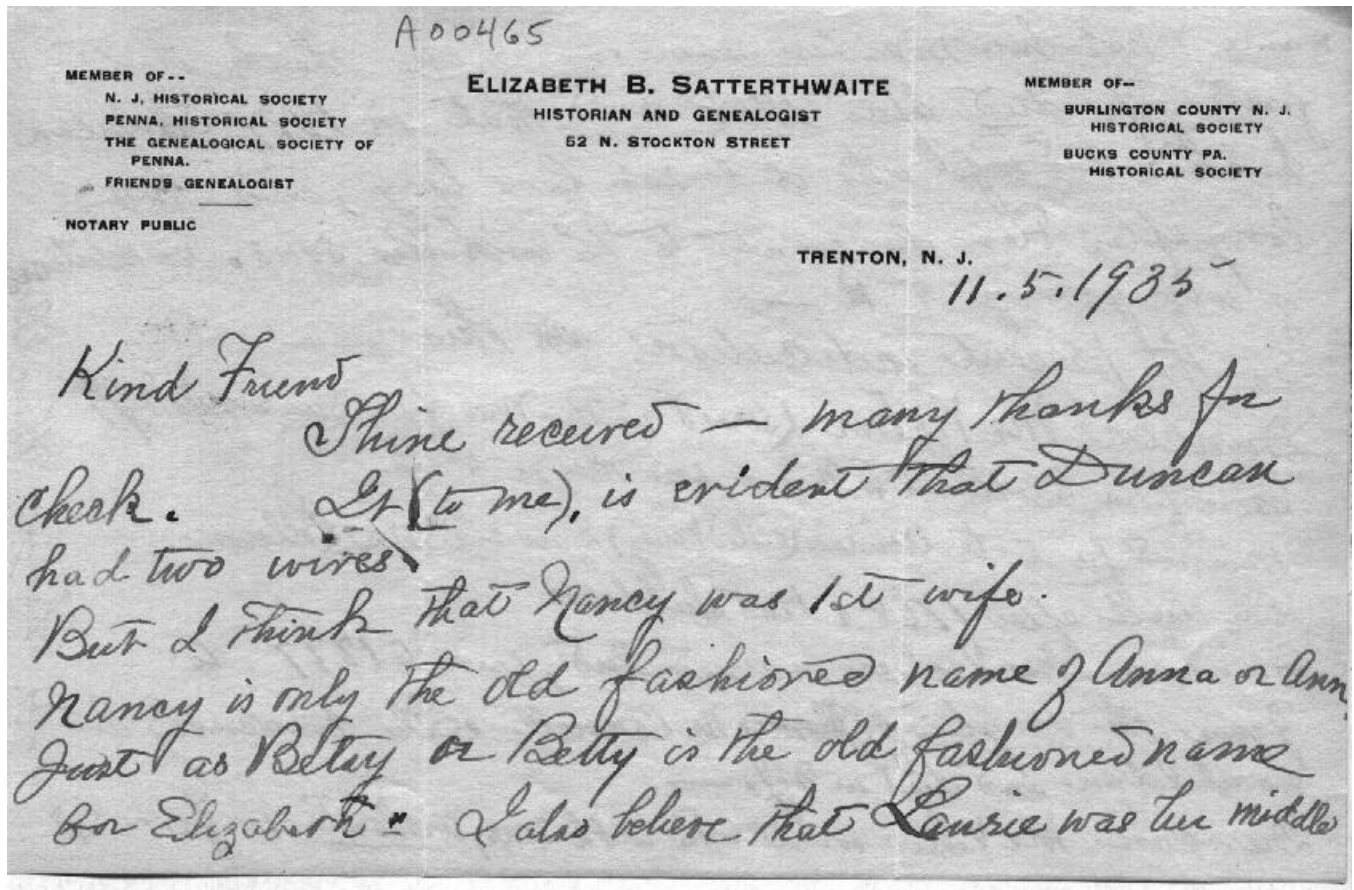 A00465
MEMBER OF--
N. J. HISTORICAL SOCIETY
PENNA. HISTORICAL SOCIETY
THE GENEALOGICAL SOCIETY OF
PENNA.
FRIENDS GENEALOGIST
NOTARY PUBLIC
ELIZABETH B. SATTERTHWAITE
HISTORIAN AND GENEALOGIST
52 N. STOCKTON STREET
MEMBER OF--
BURLINGTON COUNTY N. J.
HISTORICAL SOCIETY
BUCKS COUNTY PA.
HISTORICAL SOCIETY
TRENTON, N. J.
11.5.1935
Kind Friend
Thine received — many thanks for
check. It (to me), is evident that Duncan
had two wives
But I think that Nancy was 1st wife.
Nancy is only the old fashioned name of Anna or Ann.
Just as Betsy or Betty is the old fashioned name
for Elizabeth" I also believe that Laurie was her middle